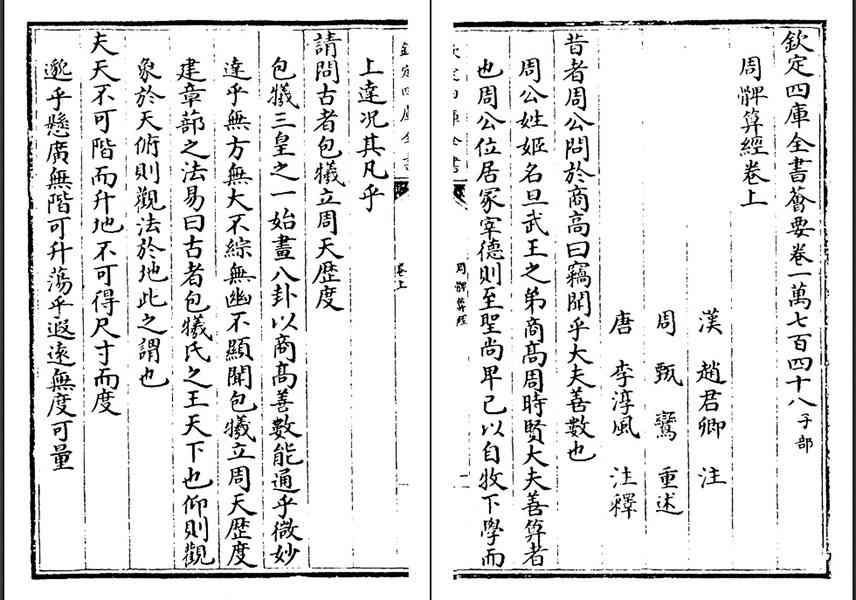 欽定四庫全書薈要卷一萬七百四十八子部
周髀算經卷上
漢 趙君卿 注
周 甄鸞 重述
唐 李淳風 注釋
昔者周公問於商高曰竊聞乎大夫善數也
周公姓姬名旦武王之弟商髙周時賢大夫善算者
也周公位居冢宰德則至聖尚卑己以自牧下學而
欽定四庫全書
周髀算經
欽定四庫全書
卷上
上達况其凡乎
請問古者包犧立周天歴度
包犧三皇之一始畫八卦以商髙善數能通乎微妙
達乎無方無大不綜無幽不顯聞包犧立周天歴度
建章蔀之法易曰古者包犧氏之王天下也仰則觀
象於天俯則觀法於地此之謂也
夫天不可階而升地不可得尺寸而度
邈乎懸廣無階可升蕩乎遐遠無度可量